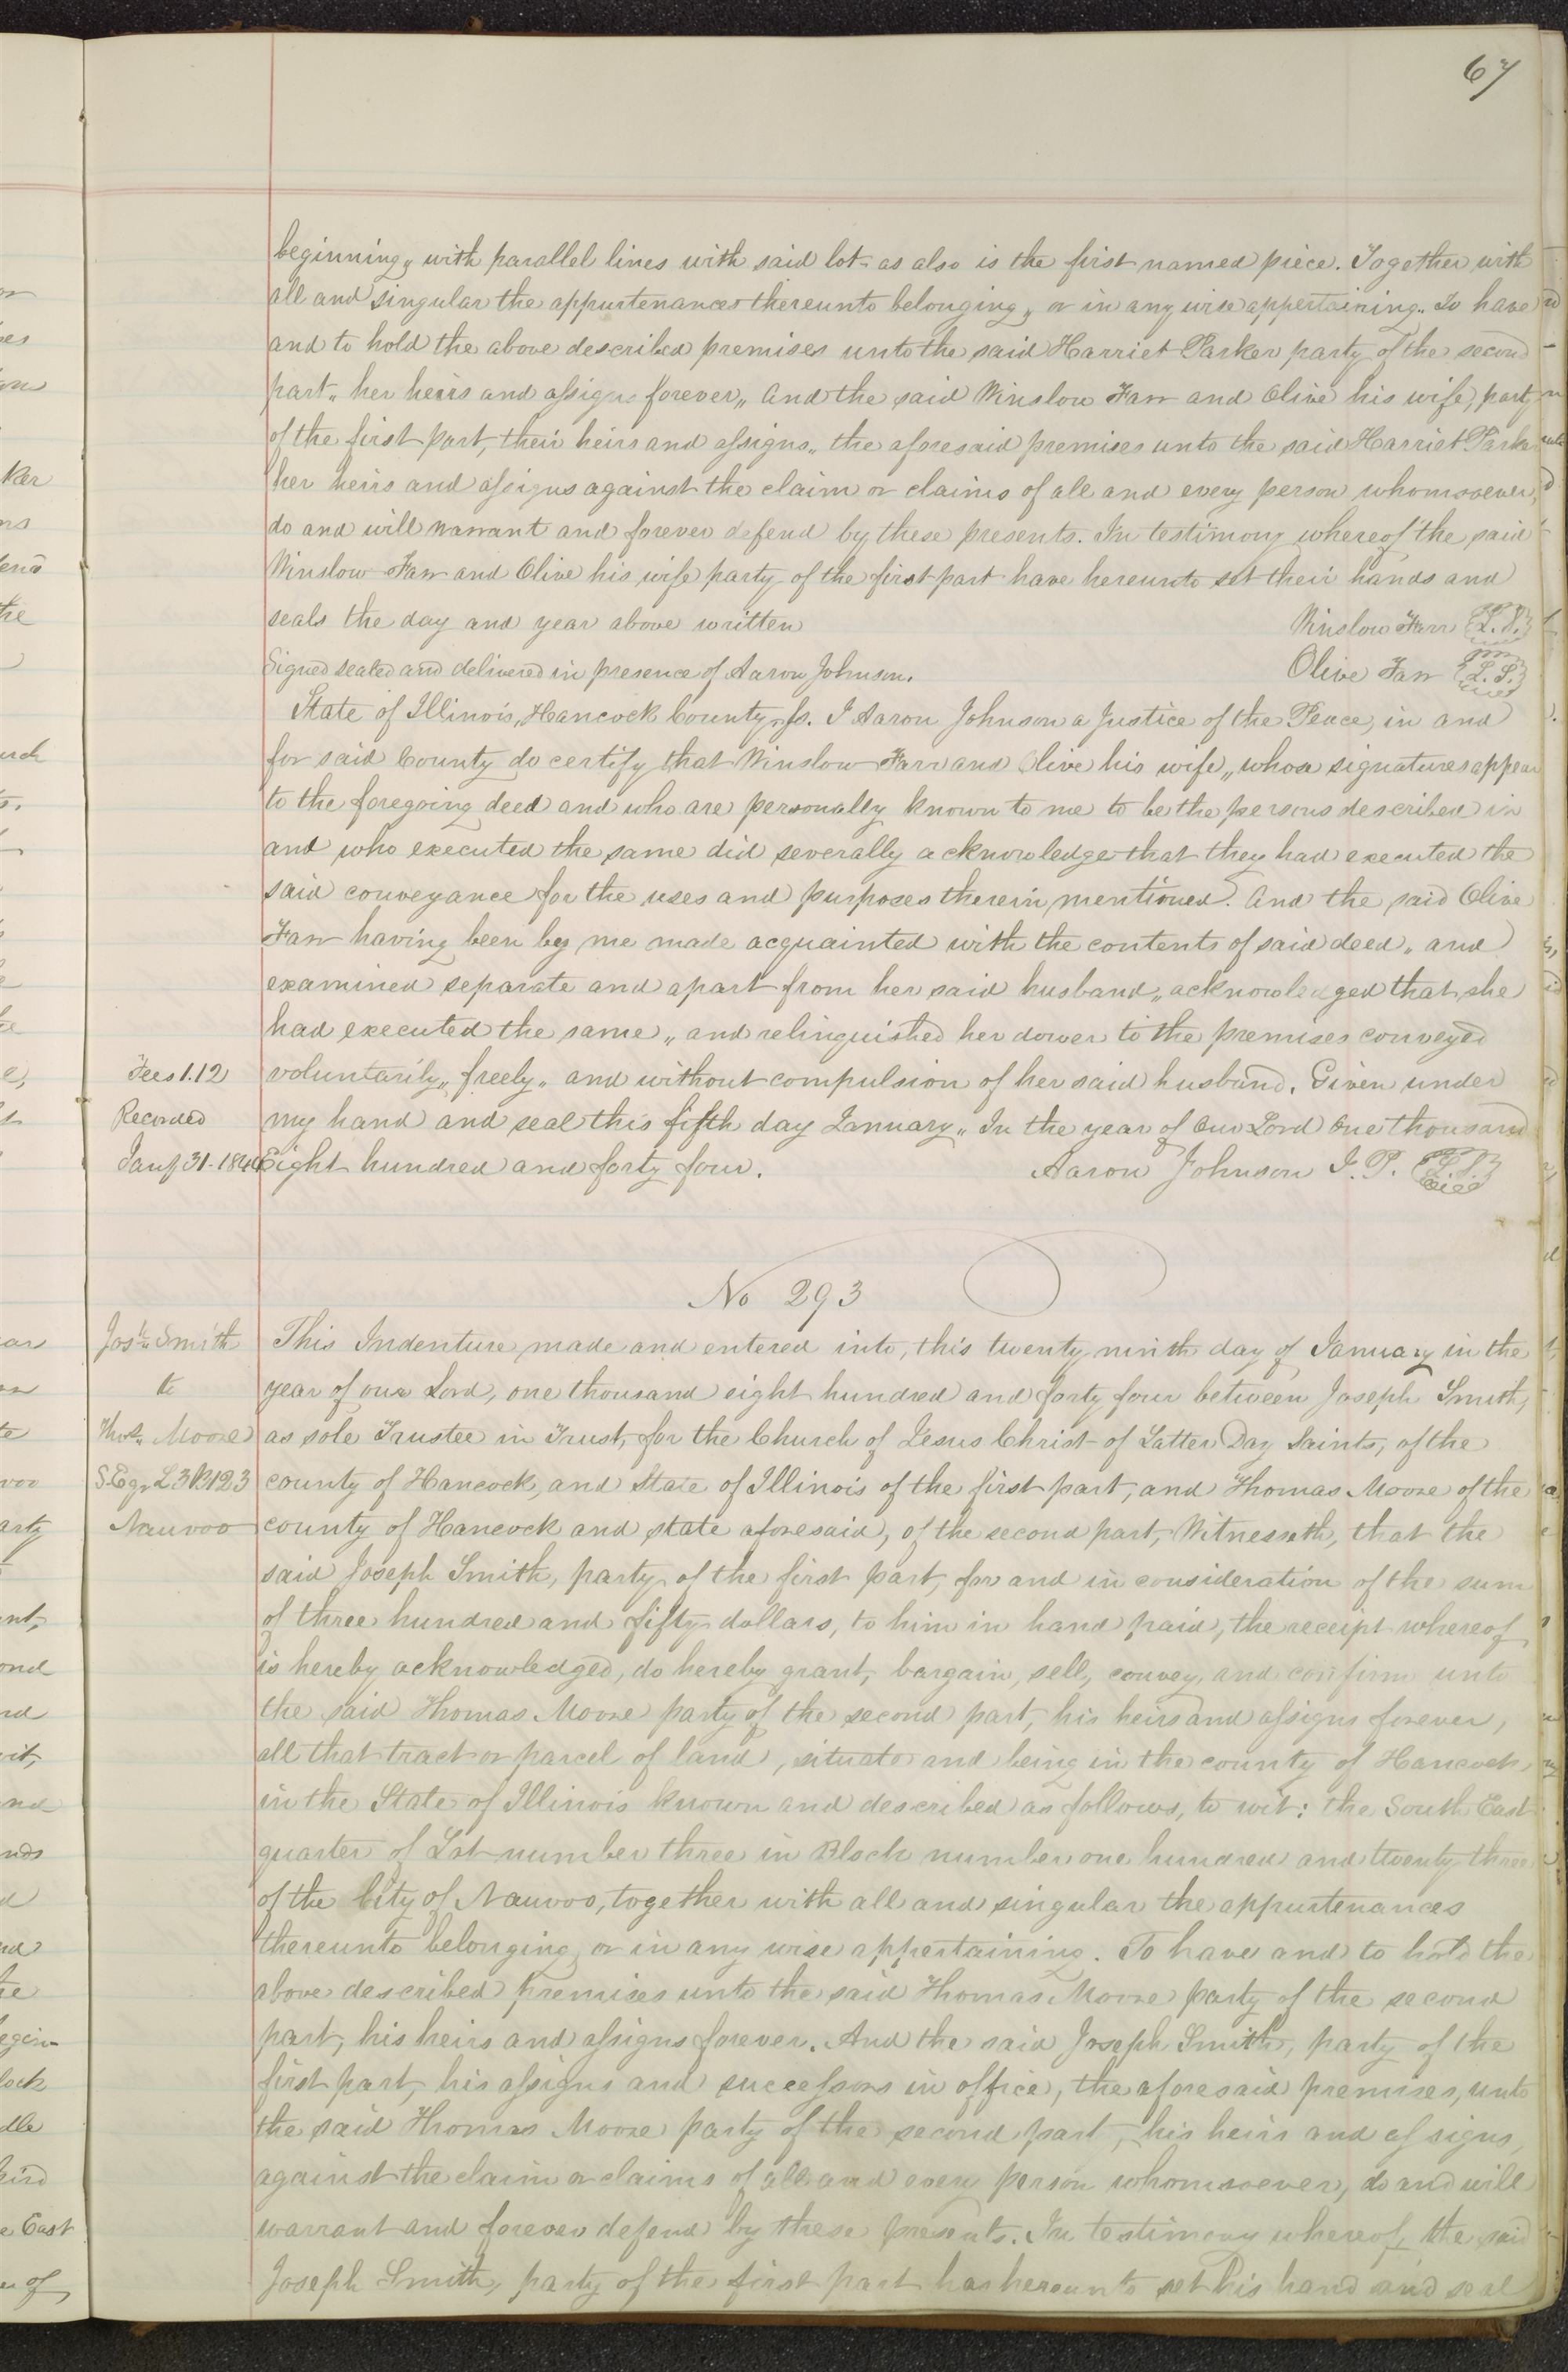 67
beginning, with parallel lines with said lot as also is the first named piece. Together with
all and singular the appurtenances thereunto belonging, or in any wise appertaining. To have
and to hold the above described premises unto the said Harriet Parker party of the second
part, her heirs and assigns forever, And the said Winslow Farr and Olive his wife, party
of the first part, their heirs and assigns, the aforesaid premises unto the said Harriet Parker
her heirs and assigns against the claim or claims of all and every person whomsoever,
do and will warrant and forever defend by these presents. In testimony whereof the said
Winslow Farr and Olive his wife party of the first part have hereunto set their hands and
seals the day and year above written Winslow Farr L.S.
Signed sealed and delivered in presence of Aaron Johnson. Olive Farr L.S.
State of Illinois, Hancock County, ss. I Aaron Johnson a Justice of the Peace, in and
for said County do certify that Winslow Farr and Olive his wife, whose signatures appear
to the foregoing deed and who are personally known to me to be the persons described in
and who executed the same did severally acknowledge that they had executed the
said conveyance for the uses and purposes therein mentioned. And the said Olive
Farr having been by me made acquainted with the contents of said deed, and
examined separate and apart from her said husband, acknowledged that she
had executed the same, and relinquished her dower to the premises conveyed
Fees 1.12 voluntarily, freely, and without compulsion of her said husband. Given under
Recorded my hand and seal this fifth day January, In the year of Our Lord One thousand
Jany 31-1844 Eight hundred and forty four. Aaron Johnson J.P. L.S.
No 293
Josh Smith This Indenture made and entered into, this twenty ninth day of January in the
to year of our Lord, one thousand eight hundred and forty four between Joseph Smith,
Thos. Moore as sole Trustee in Trust, for the Church of Jesus Christ of Latter Day Saints, of the
S.E.qr L 3 B 123 county of Hancock, and State of Illinois of the first part, and Thomas Moore of the
Nauvoo county of Hancock and state aforesaid, of the second part, Witnesseth, that the
said Joseph Smith, party of the first part, for and in consideration of the sum
of three hundred and fifty dollars, to him in hand paid, the receipt whereof
is hereby acknowledged, do hereby grant, bargain, sell, convey, and confirm unto
the said Thomas Moore party of the second part, his heirs and assigns forever,
all that tract or parcel of land, situate and being in the county of Hancock,
in the State of Illinois known and described as follows, to wit: the South East
quarter of Lot number three in Block number one hundred and twenty three
of the City of Nauvoo, together with all and singular the appurtenances
thereunto belonging, or in any wise appertaining. To have and to hold the
above described premises unto the said Thomas Moore party of the second
part, his heirs and assigns forever. And the said Joseph Smith, party of the
first part, his assigns and successors in office, the aforesaid premises, unto
the said Thomas Moore party of the second part, his heirs and assigns,
against the claim or claims of all and every person whomsoever, do and will
warrant and forever defend by these presents. In testimony whereof, the said
Joseph Smith, party of the first part has hereunto set his hand and seal